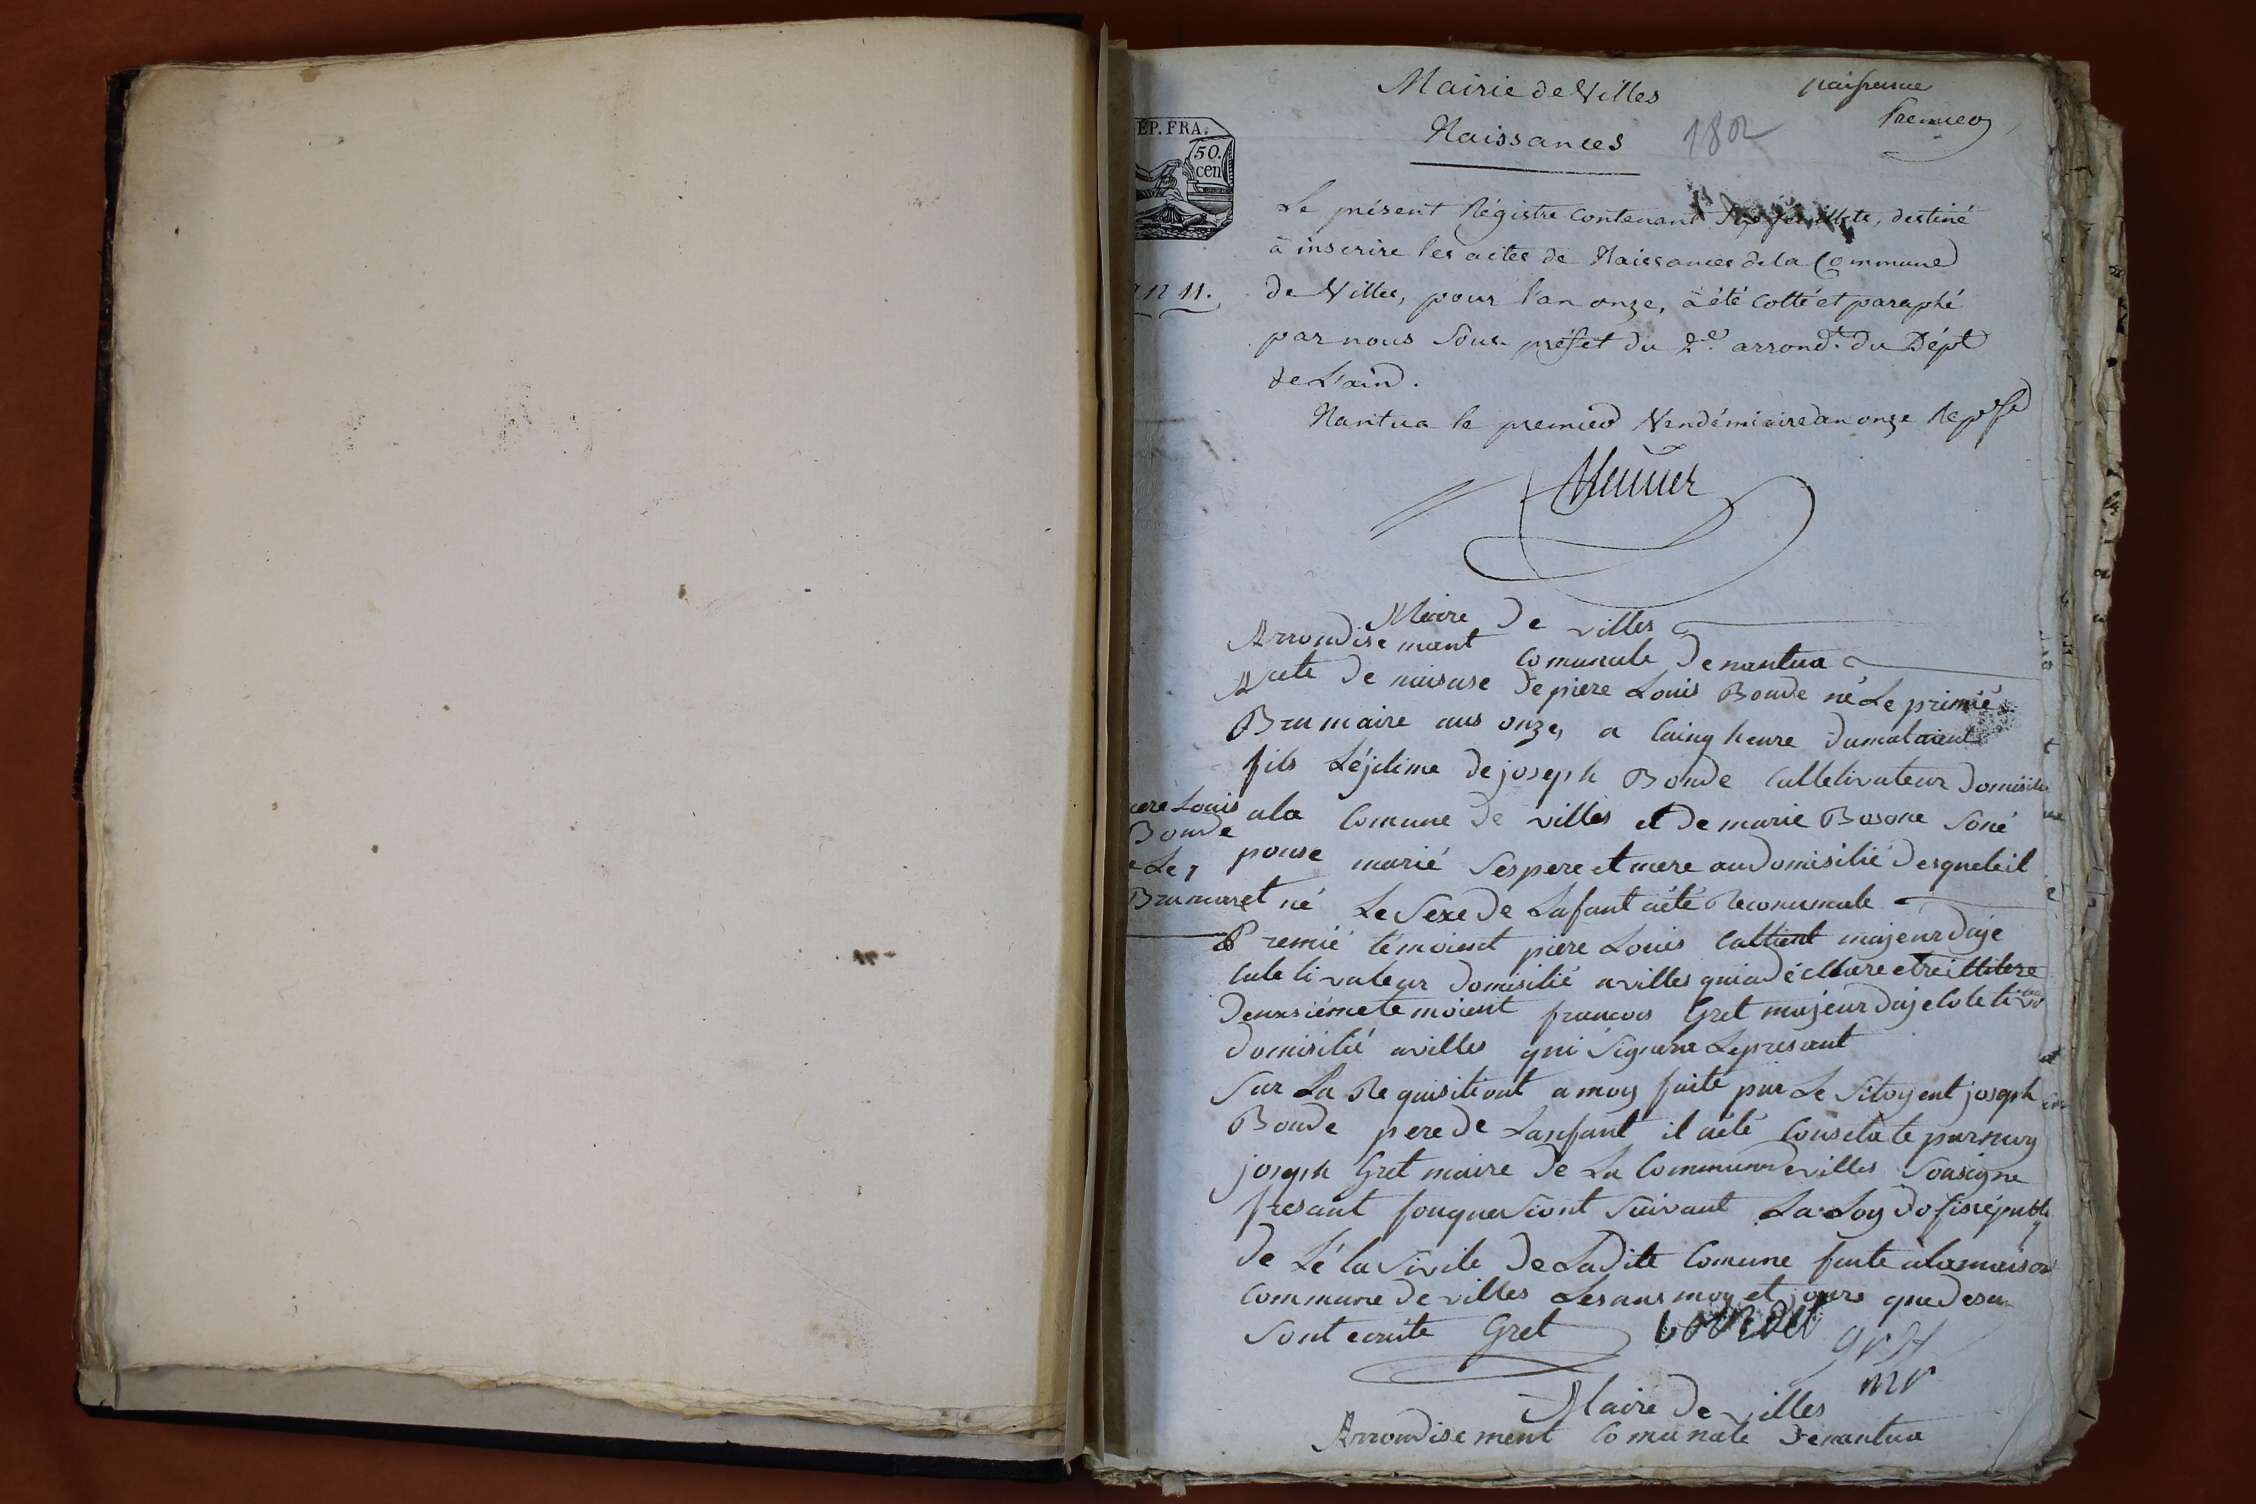 Mairie de Villes
Premier
Naissances 1802
EP. FRA.
50.
cen
Le présent Régistre Contenant feuillets, destiné
à inscrire les actes de Naissances de la Commune
an 11.
de Villes, pour l'an onze, à été cotté et paraphé
par nous Sous-préfet du 2e. arrondt. du Dépt
de L'ain.
Nantua le premier Vendémiaire an onze
Maire De villes
Arrondisemant Comunale De nantua
Acte De naisase De piere Louis Bonde né Le primié
Brumaire ans onze, a Cainq heure Dumataient
fils Léjitime De joseph Bonde Culletivateur Domisilié
ere Louis
Bonde
Le 1
Brumaret
ala Comune De villes et De marie Bosone Soné
pouse marié Ses pere et mere au Domisilié Desquele il
né Le Sexe De Lafant aété Reconu male
Premié témoient piere Louis majeur Daje
Culetivateur Domisilié avilles quia Décllare etre illitere
Deuxsiéme temoient francois Gret majeur Daje
Domisilié avilles qui Signera Lepresant
Sur La Requisitiont a moy faite par Le Sitoyent joseph
Bonde pere De Lanfant il aété Constaté par moy
joseph Gret maire De La Commune De villes Sousigne
fesant fonquesiont Suivant La Loy
De Léta Sivile De Ladite Comune faite ala maison
Commune De villes Les ans moy et jours que Desu
Sont ecrite Gret bonDet
Maire De villes
Arrondisement Comunale De nantua